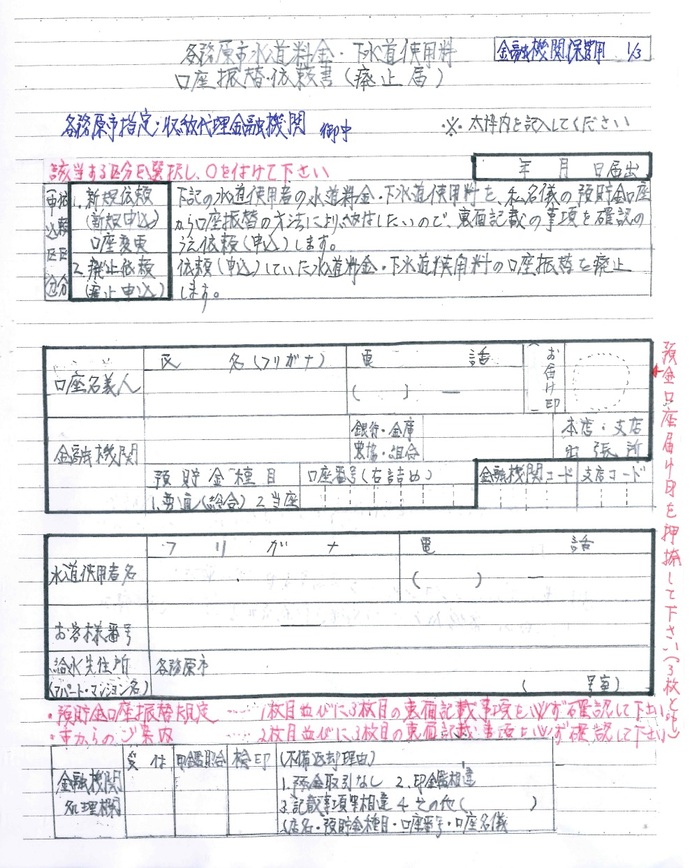 各務原市水道料金・下水道使用料
口座振替・依頼書(廃止届)
金融機関保管用 1/3
各務原市指定・収納代理金融機関 御中
※太枠内を記入してください
該当する区分を選択し、○を付けて下さい
年 月 日届出
申込区分 依頼区分
1.新規依頼
(新規申込)
口座変更
2.廃止依頼
(廃止申込)
下記の水道使用者の水道料金・下水道使用料を、私名儀の預貯金口座
から口座振替の方法により、納付したいので、裏面記載の事項を確認の
うえ依頼(申込)します。
依頼(申込)していた水道料金・下水道使用料の口座振替を廃止
します。
口座名義人
氏 名(フリガナ)
電 話
( ) ー
お届け印
金融機関
銀行・金庫
農協・組合
本店・支店
出張所
預貯金種目
1.普通(総合) 2.当座
口座番号(右詰め)
金融機関コード
支店コード
預金口座届け印を押捺して下さい(3枚とも)
フリガナ
電 話
水道使用者名
( ) ー
お客様番号
給水先住所
(アパート・マンション名)
各務原市
( 号室)
・預貯金口座振替規定 ・・・・ 1枚目並びに3枚目の裏面記載事項を必ず確認して下さい
・市からのご案内 ・・・・ 2枚目並びに3枚目の裏面記載事項を必ず確認して下さい
金融機関
処理欄
受付
印鑑照合
検印
(不備返却理由)
1.預金取引なし 2.印鑑相違
3.記載事項等相違 4.その他( )
(店名・預貯金種目・口座番号・口座名儀